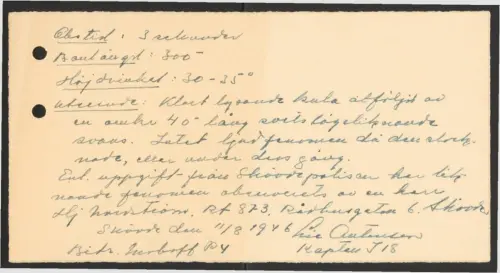 Obstid: 3 sekunder
Banlängd: 300°
Höjdvinkel: 30-35°
Utseende: Klart lysande kula åtföljd av
en omkr 40° lång svetslågeliknande
svans. Intet ljudfenomen då den slock-
nade, eller under dess gång.
Enl. uppgift från Skövdepolisen har lik-
nande fenomen observerats av en herr
Hj. Rt 873, Rådhusgatan 6, Skövde
Skövde den 11/8 1946
Kapten I 18
P4